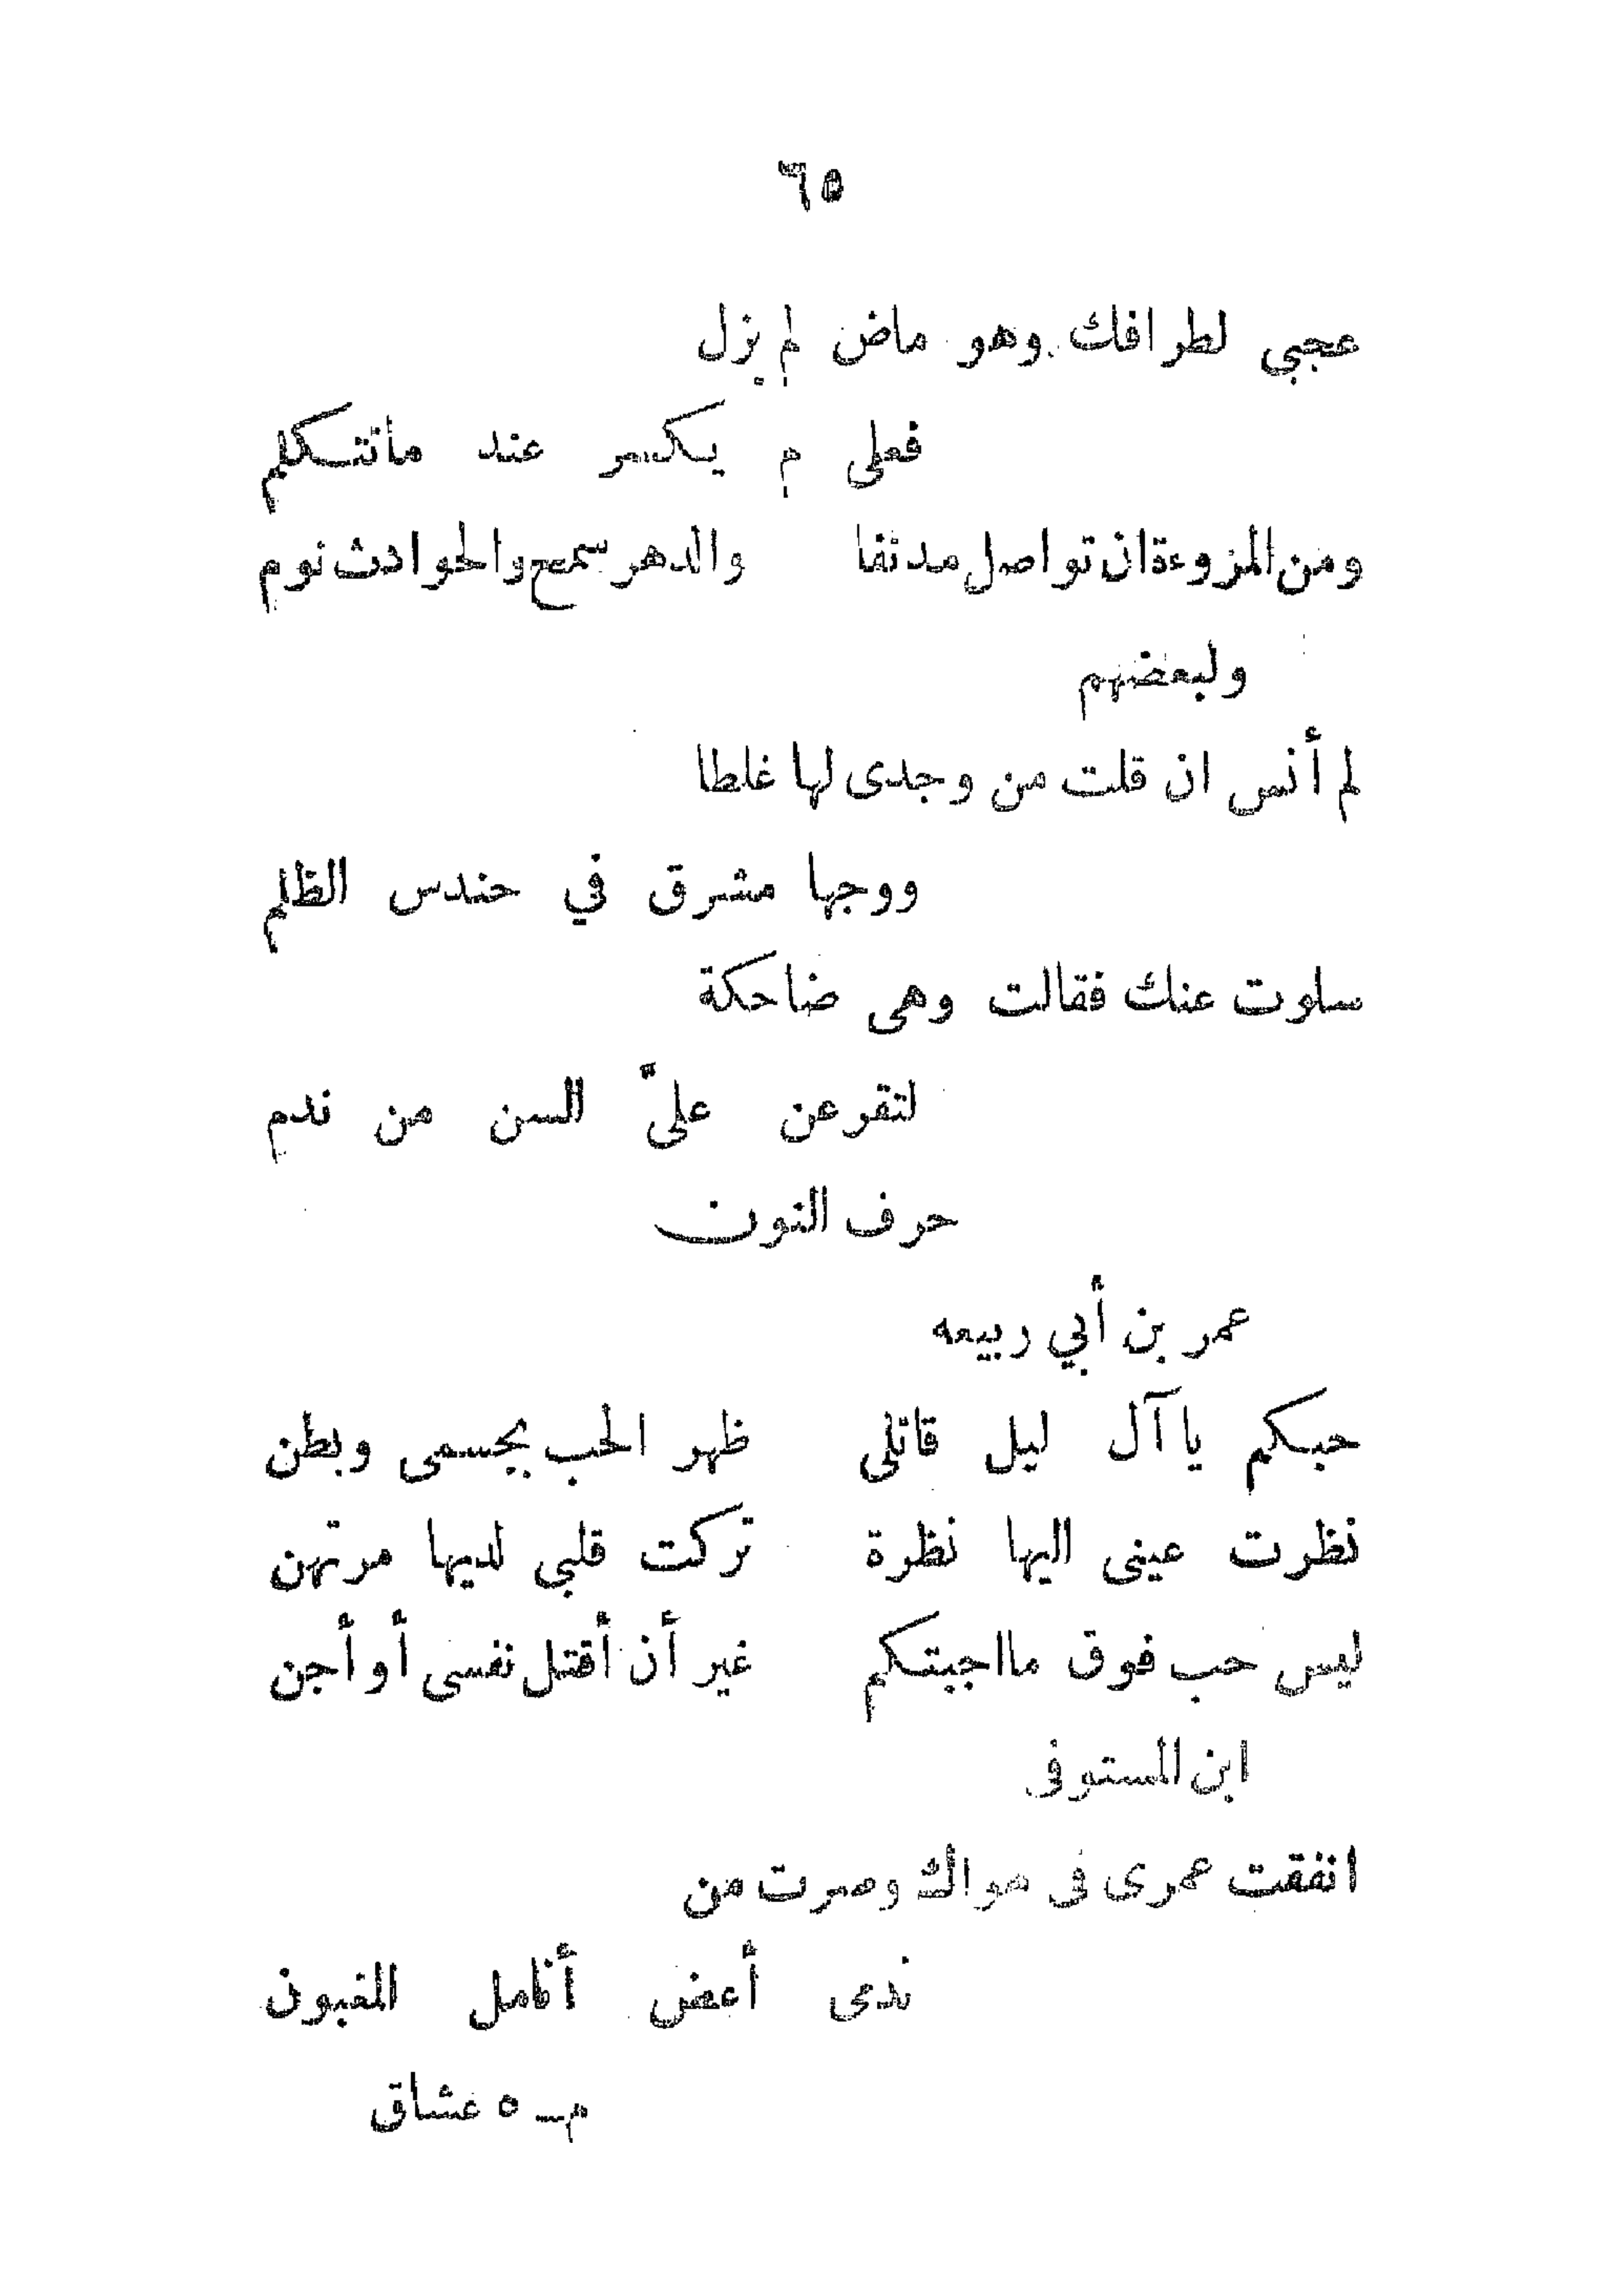 ٦٥
عجبي لطرافك وهو ماض لم يزل
فعلى م يكسر عند ماتتكلم
ومن المزوءة ان تواصل مدنفا والدهر سمح والحوادث نوم
ولبعضهم
لم أنس ان قلت من وجدى لها غلطا
ووجها مشرق في حندس الظلم
سلوت عنك فقالت وهى ضاحكة
لتقرعن علىّ السن من ندم
حرف النون
عمر بن أبي ربيعه
حبكم يا آل ليل قاتلى ظهر الحب بجسمى وبطن
نظرت عينى اليها نظرة تركت قلبى لديها مرتهن
ليس حب فوق مااجبتكم غير أن أقتل نفسى أو أجن
ابن المستوفى
انفقت عمرى فى هواك وصرت من
ندمى أعض أنامل المغبون
م ــ ٥ عشاق